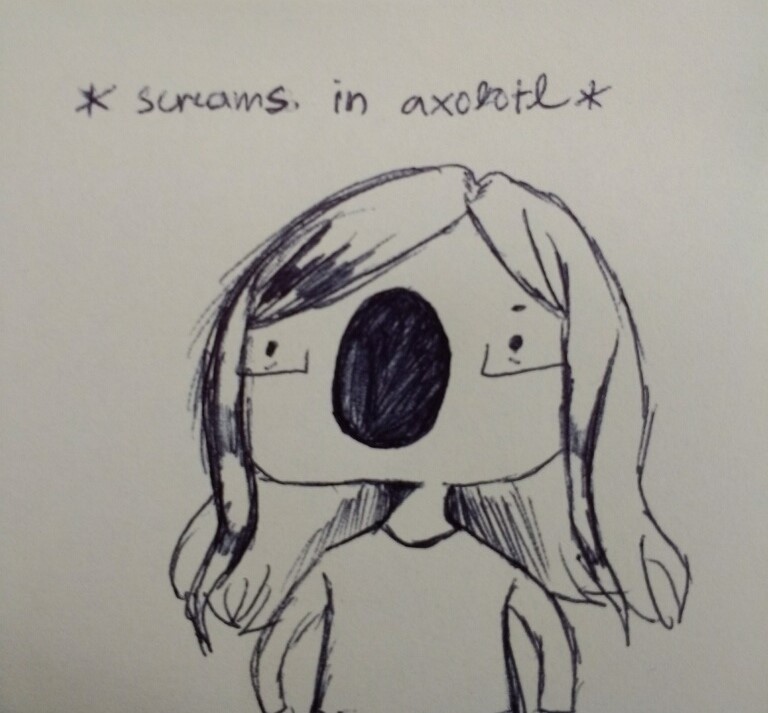 * screams. in axolotl *